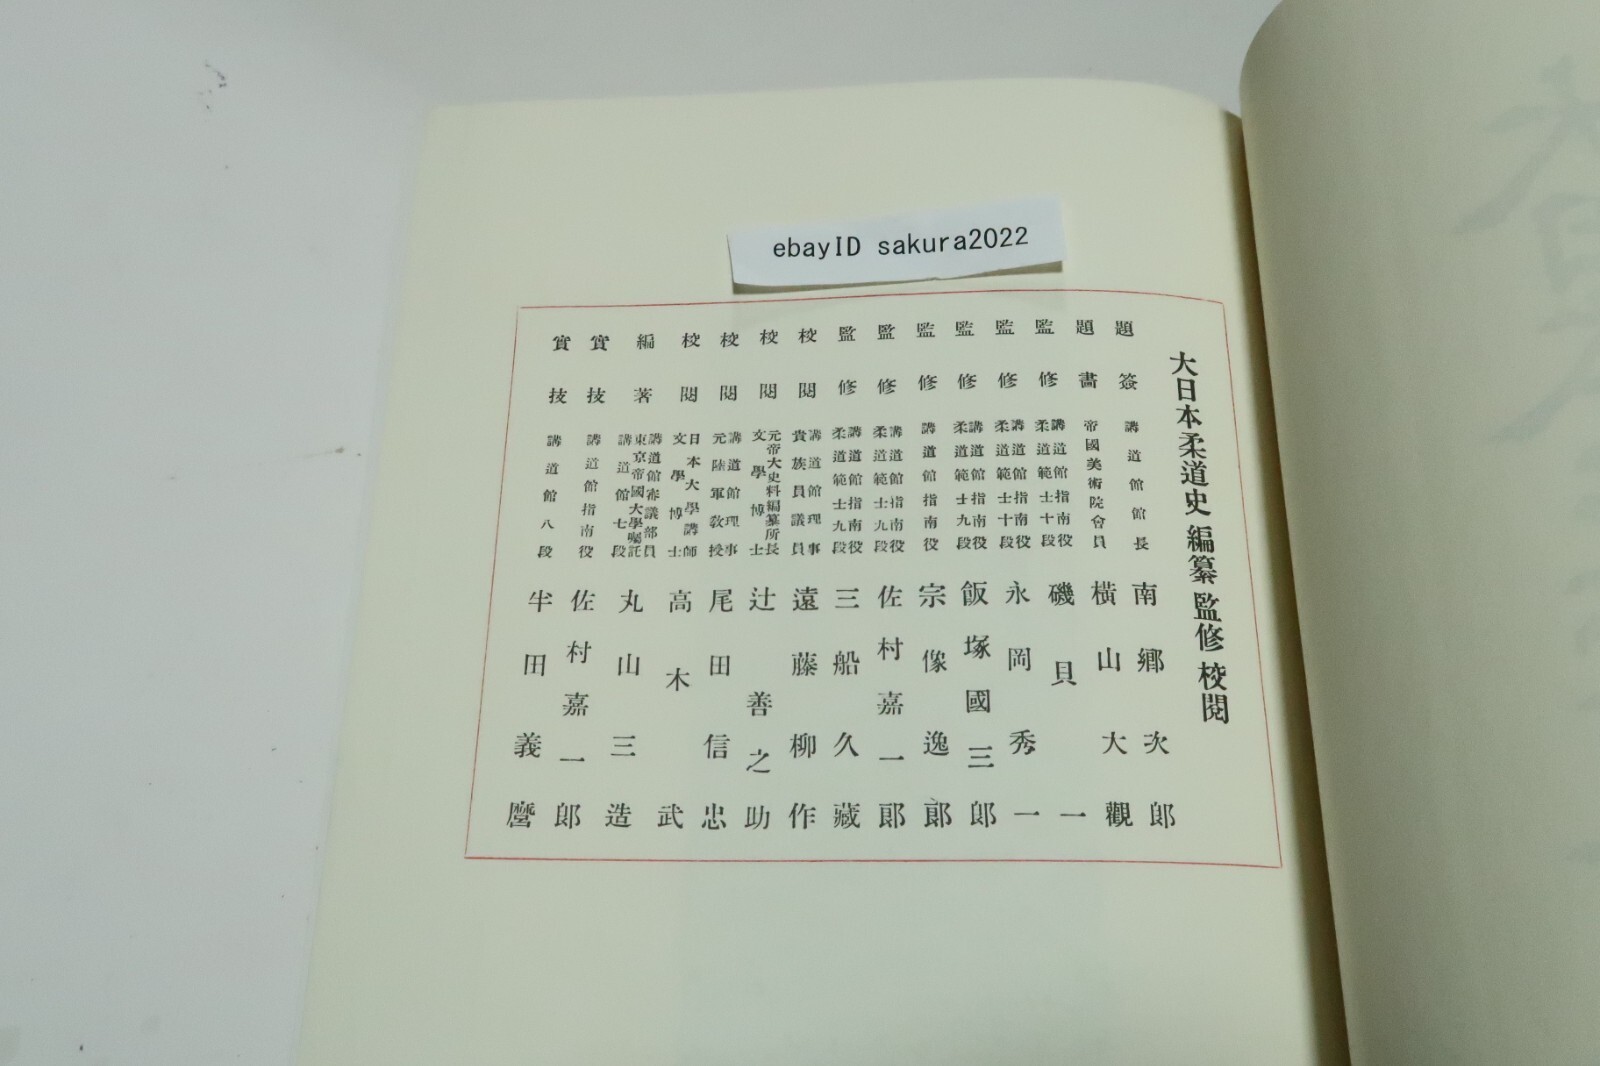 ebayID sakura2022
大日本柔道史 編纂 監修 校閲
題簽 講道館館長 南鄉次郎
題畫 帝國美術院會員 橫山大觀
監修 講道館指南役 柔道範士十段 磯貝一
監修 講道館指南役 柔道範士十段 永岡秀一
監修 講道館指南役 柔道範士九段 飯塚國三郎
監修 講道館指南役 宗像逸郎
監修 講道館指南役 柔道範士九段 佐村嘉一郎
監修 講道館指南役 柔道範士九段 三船久藏
校閲 講道館理事 貴族員議員 遠藤柳作
校閲 元帝大史料編纂所長 文學博士 辻善之助
校閲 講道館理事 元陸軍教授 尾田信忠
校閲 日本大學講師 文學博士 高木武
編著 講道館審議部員 東京帝國大學囑託 講道館七段 丸山三造
實技 講道館指南役 佐村嘉一郎
實技 講道館八段 半田義麿